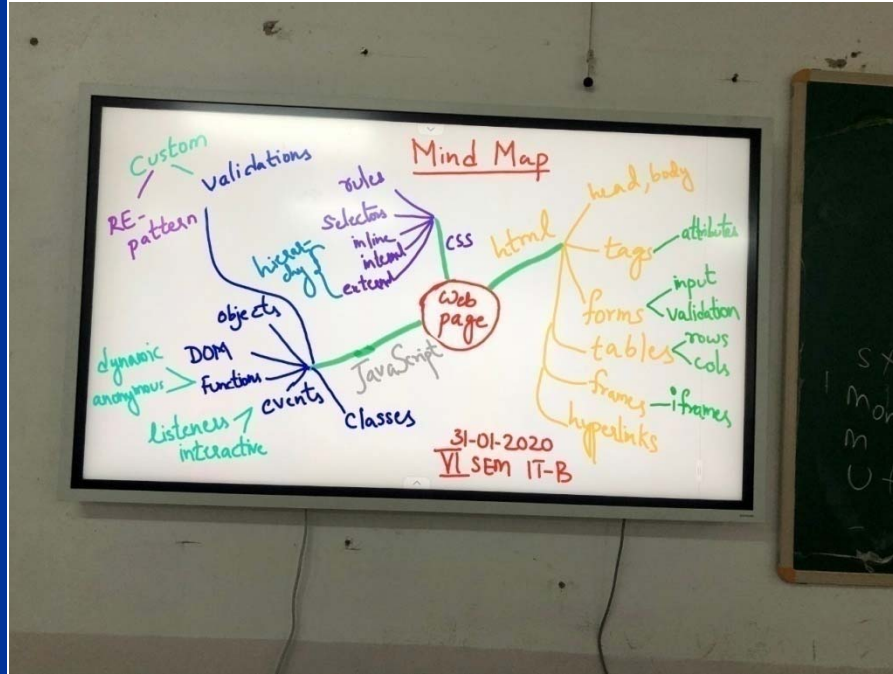 Mind Map
Custom
validations
RE-
pattern
rules
Selectors
inline
internal
external
hierar-
chy
css
html
head, body
tags
attributes
forms
input
validation
tables
rows
cols
frames
iframes
hyperlinks
Web
page
JavaScript
objects
DOM
Functions
dynamic
anonymous
events
listeners
interactive
classes
31-01-2020
VI SEM IT-B